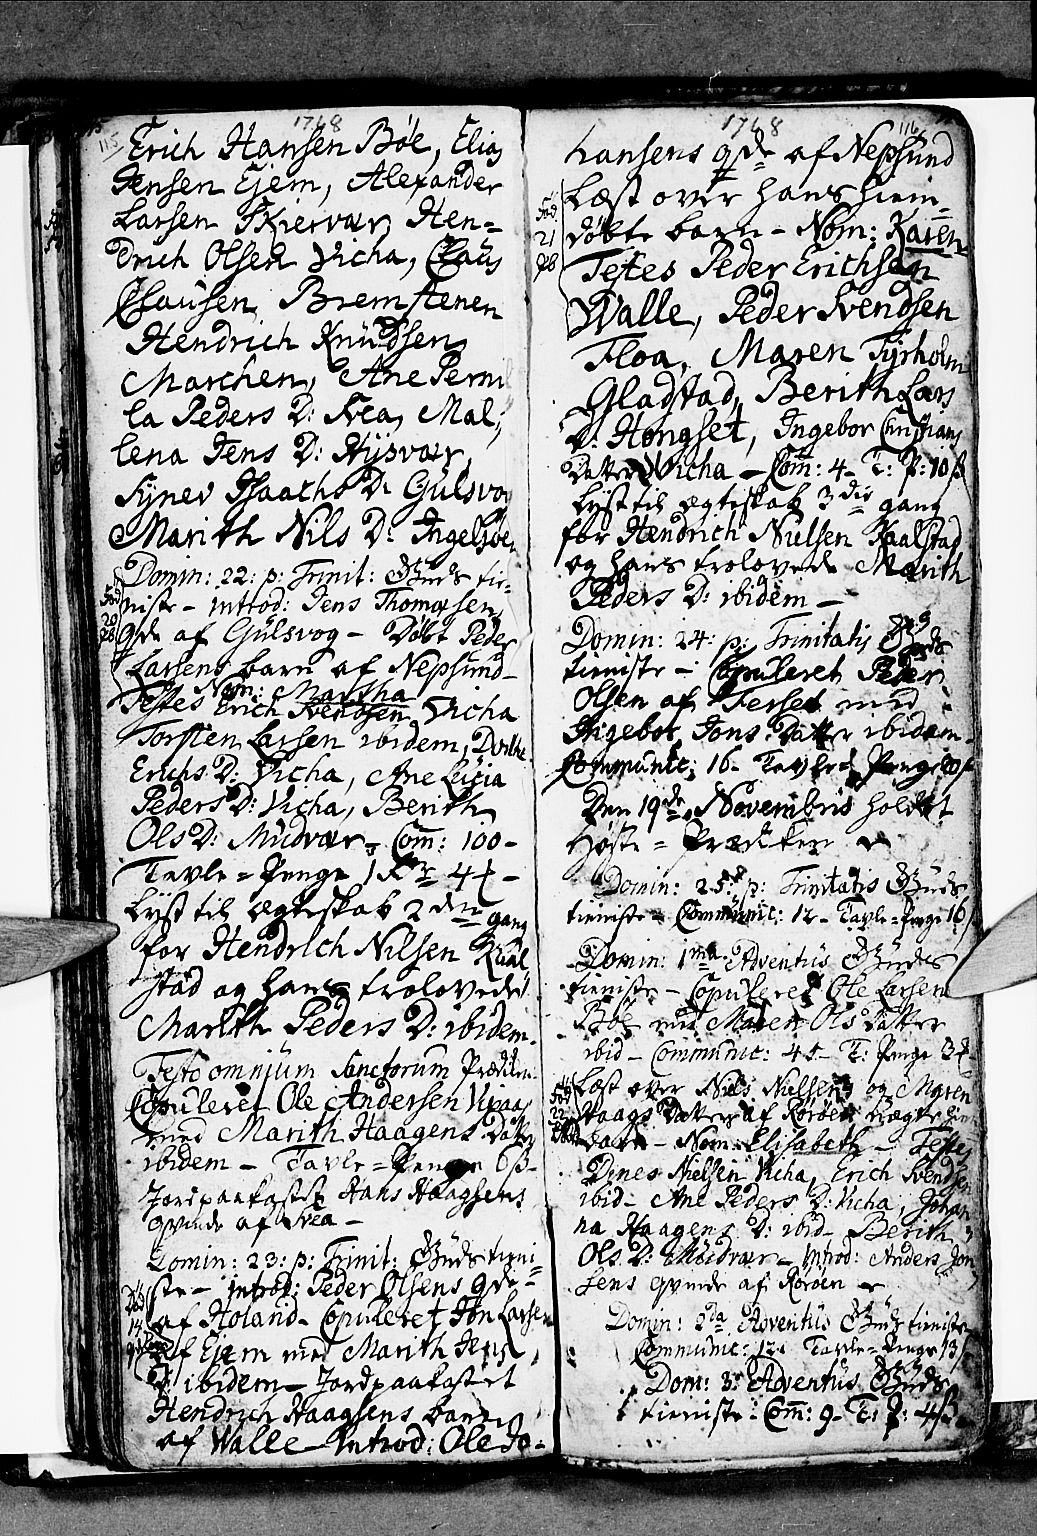 115 1768
Erich Hansen Bøe, Elias
Jensen Ejem, Alexander
Larsen Skiervær, Hen=
drich Olsen Vicha, Claus
Clausen Bremstenen
Hendrich Knudsen
Marchen, Ane Pernil
la Peders D: Svea, Mal=
lena Jens D: Nijsvær,
Synev Isaachs D: Gulsvog
Marith Nils D: Ingelsøen
Domin: 22: p: Trinit: Guds tie=
niste – Introd: Jens Thomæsens
qde af Gulsvog – Døbt Peder
Larsens barn af Nepsund –
Nom: Martha
Testes Erich Svendsen Vicha
Torsten Larsen ibidem, Dorthe
Erichs D: Vicha, Ane Leicia
Peders D: Vicha, Berith
Ols D: Mudvær – Com: 100 –
Tavle = Penge 1 4
Lyst til ægteskab 2den gang
for Hendrich Nilsen Kaal
stad og hans trolovede
Marith Peders D: ibidem.
Festo omnium Sanctorum Prædiken
Copuleret Ole Andersen Viisaas
med Marith Haagens Datter
ibidem – Tavle = Penge 6 ß –
Jordpaakastet Hans Haagsens
qvinde af Svea –
Domin: 23: p: Trinit: Guds tieni=
ste – Introd: Peder Olsens qde
af Holand – Copuleret Jon Larsen
af Ejem med Marith Jens
D: ibidem – Jordpaakastet
Hendrich Haagsens barn
af Walle – Introd: Ole Jo=
1768 116
hansens qde af Nepsund
Læst over hans hiem=
døbte barn – Nom: Karen
Testes Peder Erichsen
Walle, Peder Svendsen
Floa, Maren Tyrholm
Gladstad, Berith Lars
D: Hongset, Ingebor Christians
Datter Vicha – Com: 4 – T: P: 10 ß
Lyst til ægteskab 3die gang
for Hendrich Nielsen Kaalstad
og hans trolovede Marith
Peders D: ibidem –
Domin: 24: p: Trinitatis Guds
tieniste – Copuleret Peder
Olsen af Ferset med
Ingebor Jons Datter ibidem –
Communic: 16 – Tavle = Penge
Den 19de Novembris holdet
Høste = Prædiken
Domin: 25: p: Trinitatis Guds
tieniste – Communic: 12 – Tavle = Penge 16 ß
Domin: 1ma Adventus Guds
tieniste – Copuleret Ole Larsen
Bøe med Maren Ols Datter
ibid – Communic: 45 – T: Penge 3
Læst over Niels Nielsens og Maren
Haags Datters af Rorøen uægte hiem
barn – Nom: Elisabeth – Testes
Denes Nielsen Vicha, Erich Svendsen
ibid – Ane Peders D: Vicha, Johan
na Haagens D: ibid – Berith
Ols D: Mudvær – Introd: Anders Jon
sens qvinde af Rorøen –
Domin: 2da Adventus Guds tieniste
Communic: 12 Tavle = Penge 13 ß
Dom: 3: Adventus Guds
tieniste: Com: 9 – T: P: 4 ß